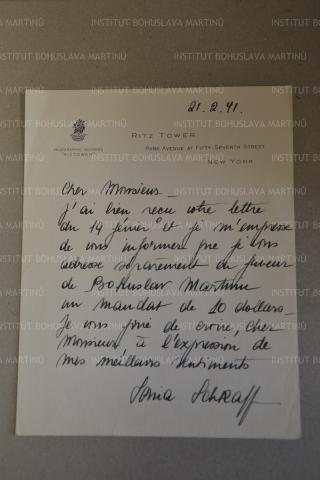 INSTITUT BOHUSLAVA MARTINŮ
21. 2. 41.
RITZ TOWER
TELEGRAPHIC ADDRESS
"RITZOWER"
PARK AVENUE AT FIFTY-SEVENTH STREET
NEW YORK
Cher Monsieur_
J'ai bien reçu votre lettre
du 14 février et je m'empresse
de vous informer que je vous
adresse séparément en faveur
de Bohuslav Martinu
un mandat de 20 dollars_
Je vous prie de croire, cher
Monsieur à l'expression de
mes meilleurs sentiments
Sonia